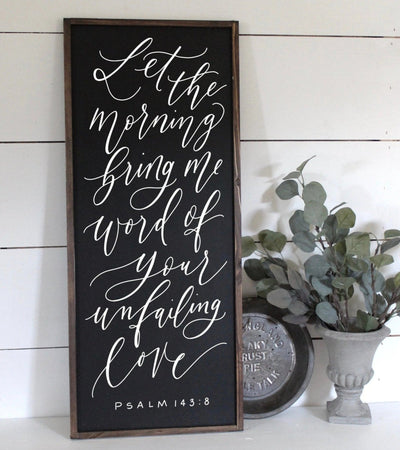 Let the
morning
bring me
word of
your
unfailing
love
PSALM 143:8
ENGLAND
FLAKY
CRUST
PIE